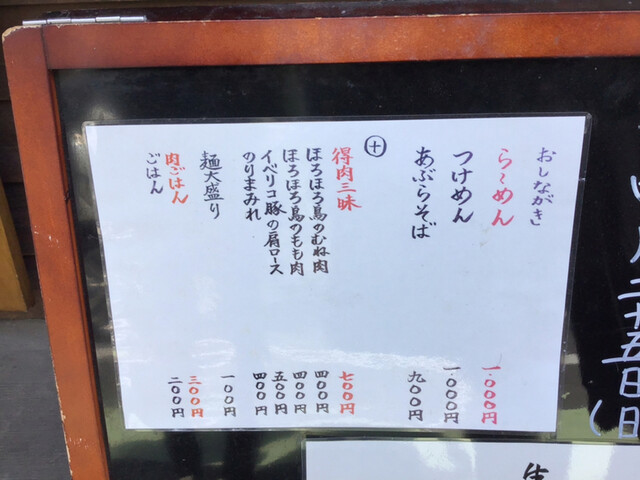 おしながき
らーめん 一、〇〇〇円
つけめん 一、〇〇〇円
あぶらそば 九〇〇円
十
得肉三昧 七〇〇円
ほろほろ鳥のむね肉 四〇〇円
ほろほろ鳥のもも肉 四〇〇円
イベリコ豚の肩ロース 五〇〇円
のりまみれ 四〇〇円
麺大盛り 一〇〇円
肉ごはん 三〇〇円
ごはん 二〇〇円
月二十五日(日